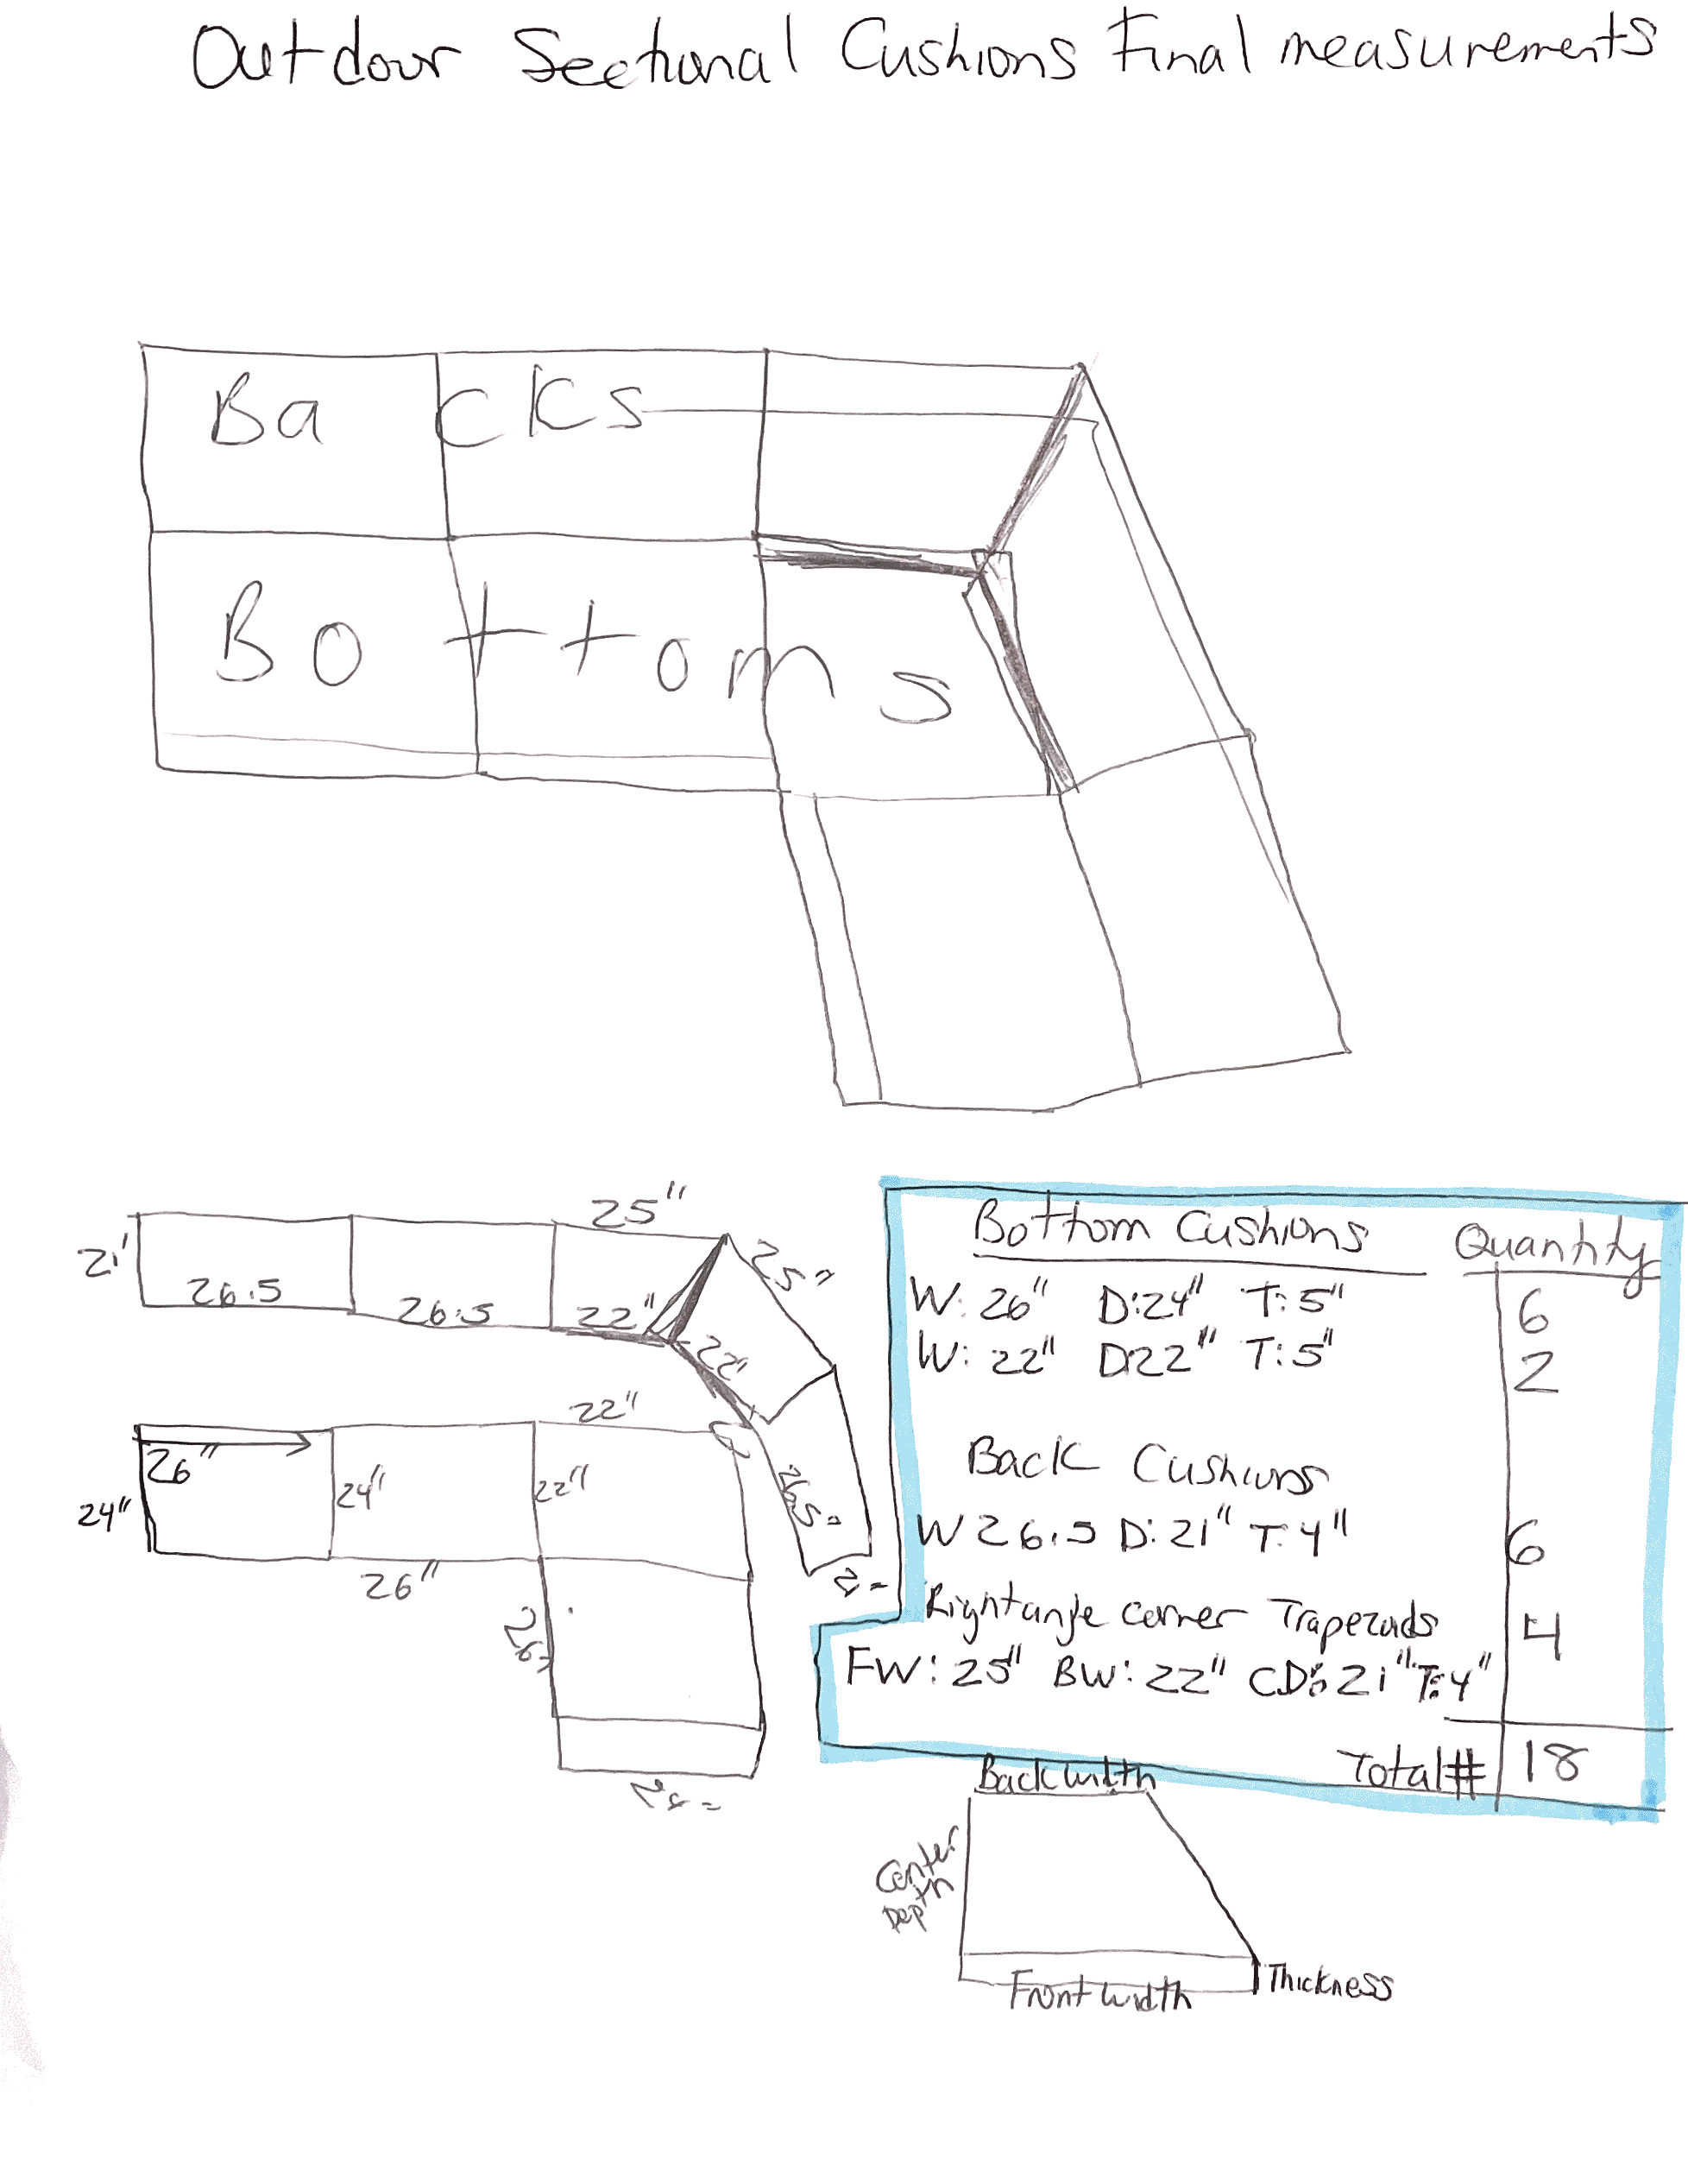 Outdoor Sectional Cushions Final measurements
Backs
Bottoms
25"
21'
26.5
26.5
22"
25"
22"
26.5"
21"
22"
26"
24"
24"
22"
26"
26"
Bottom Cushions Quantity
W: 26" D:24" T:5" 6
W: 22" D:22" T:5" 2
Back Cushions
W 26.5 D:21" T:4" 6
Rightangle corner Trapezoids 4
FW: 25" BW: 22" CD: 21" T:4"
Total# 18
Back width
Center
Depth
Front width
Thickness